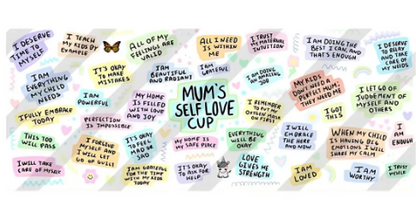 I DESERVE
TIME TO
MYSELF
I TEACH
MY KIDS BY
EXAMPLE
ALL OF MY
FEELINGS ARE
VALID
ALL I NEED
IS WITHIN
ME
I TRUST
MY MATERNAL
INTUITION
I AM DOING THE
BEST I CAN, AND
THAT'S ENOUGH
I DESERVE
TO RELAX
AND TAKE
CARE OF MY
NEEDS
I AM
EVERYTHING
MY CHILD
NEEDS
IT'S OKAY
TO MAKE
MISTAKES
I AM
BEAUTIFUL
AND RADIANT
I AM
GRATEFUL
I AM DOING
AN AMAZING
JOB
MY KIDS
DON'T NEED A
PERFECT MUM,
THEY NEED ME
I AM
POWERFUL
MY HOME
IS FILLED
WITH LOVE
AND JOY
MUM'S
SELF LOVE
CUP
I REMEMBER
MY
OXYGEN MASK
I GOT
THIS
I LET GO OF
JUDGEMENT OF
MYSELF AND
OTHERS
I FULLY EMBRACE
TODAY
PERFECTION
IS IMPOSSIBLE
THIS TOO
WILL PASS
I FORGIVE
MYSELF AND I
WILL LET
GO OF GUILT
IT'S OKAY
TO FEEL
MAD OR
SAD
MY HOME IS
A SAFE PLACE
EVERYTHING
WILL BE
OKAY
I WILL
EMBRACE
THE HERE
AND NOW
WHEN MY CHILD
IS HAVING BIG
EMOTIONS I WILL
SHARE MY CALM
I
AM
ENOUGH
I WILL TAKE
CARE OF MYSELF
I AM GRATEFUL
FOR THE TIME
WITH MY KIDS
TODAY
IT'S OKAY
TO ASK FOR
HELP
LOVE
GIVES ME
STRENGTH
I AM
LOVED
I AM
WORTHY
I TRUST
MYSELF